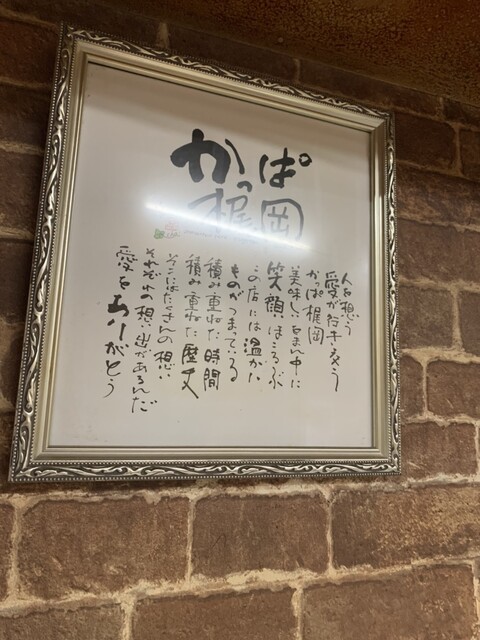 かっぱ
梶岡
人を想う
愛が行き交う
かっぱ梶岡
美味しいをまん中に
笑顔ほころぶ
この店には温かな
ものがつまっている
積み重ねた時間
積み重ねた歴史
そこにはたくさんの想い
それぞれの想い出があるんだ
愛をありがとう